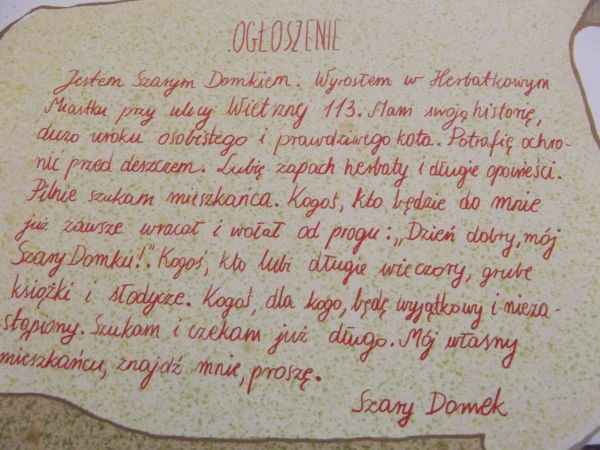 OGŁOSZENIE
Jestem Szarym Domkiem. Wyrosłem w Herbatkowym
Miastku przy ulicy Wietrznej 113. Mam swoją historię,
dużo uroku osobistego i prawdziwego kota. Potrafię ochro-
nić przed deszczem. Lubię zapach herbaty i długie opowieści.
Pilnie szukam mieszkańca. Kogoś, kto będzie do mnie
już zawsze wracał i wołał od progu: „Dzień dobry, mój
Szary Domku!”. Kogoś, kto lubi długie wieczory, grube
książki i słodycze. Kogoś, dla kogo, będę wyjątkowy i nieza-
stąpiony. Szukam i czekam już długo. Mój własny
mieszkańcu, znajdź mnie, proszę.
Szary Domek